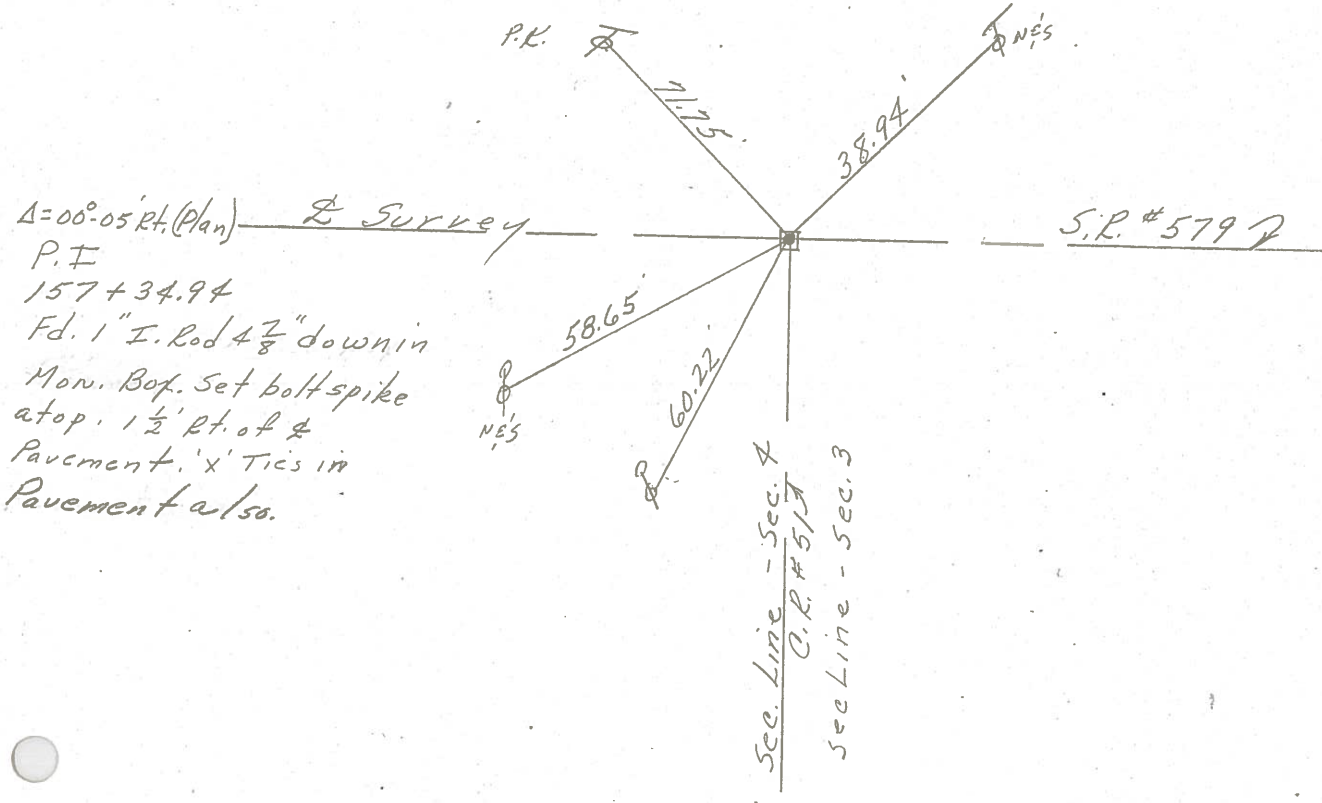 P.K.
N&S
71.75
38.94'
Δ=00°-05' Rt. (Plan)
℄ Survey
S.R. #579
P.I
157+34.94
Fd. 1" I. Rod 4 7/8" down in
Mon. Box. Set bolt spike
atop. 1 1/2' Rt. of ℄
Pavement. 'X' Ties in
Pavement also.
58.65'
60.22'
N&S
Sec. Line - Sec. 4
C.R. #
Sec Line - Sec. 3